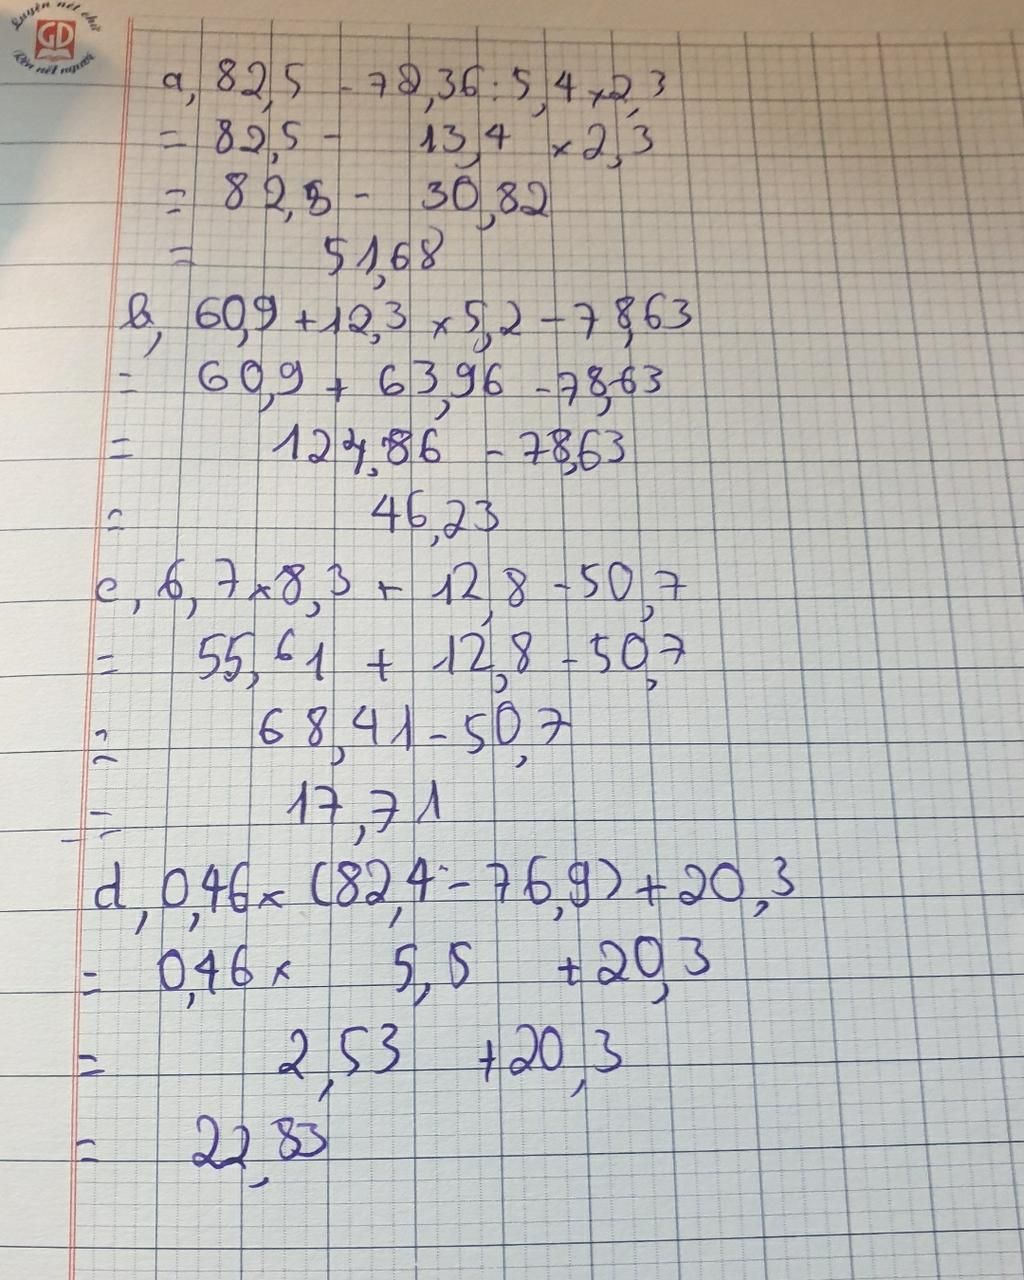 Luyện nét chữ
GD
Rèn nết người
a, 82,5 - 72,36 : 5,4 x 2,3
= 82,5 - 13,4 x 2,3
= 82,5 - 30,82
= 51,68
b, 60,9 + 12,3 x 5,2 - 78,63
= 60,9 + 63,96 - 78,63
= 124,86 - 78,63
= 46,23
c, 6,7 x 8,3 + 12,8 - 50,7
= 55,61 + 12,8 - 50,7
= 68,41 - 50,7
= 17,71
d, 0,46 x (82,4 - 76,9) + 20,3
= 0,46 x 5,5 + 20,3
= 2,53 + 20,3
= 22,83